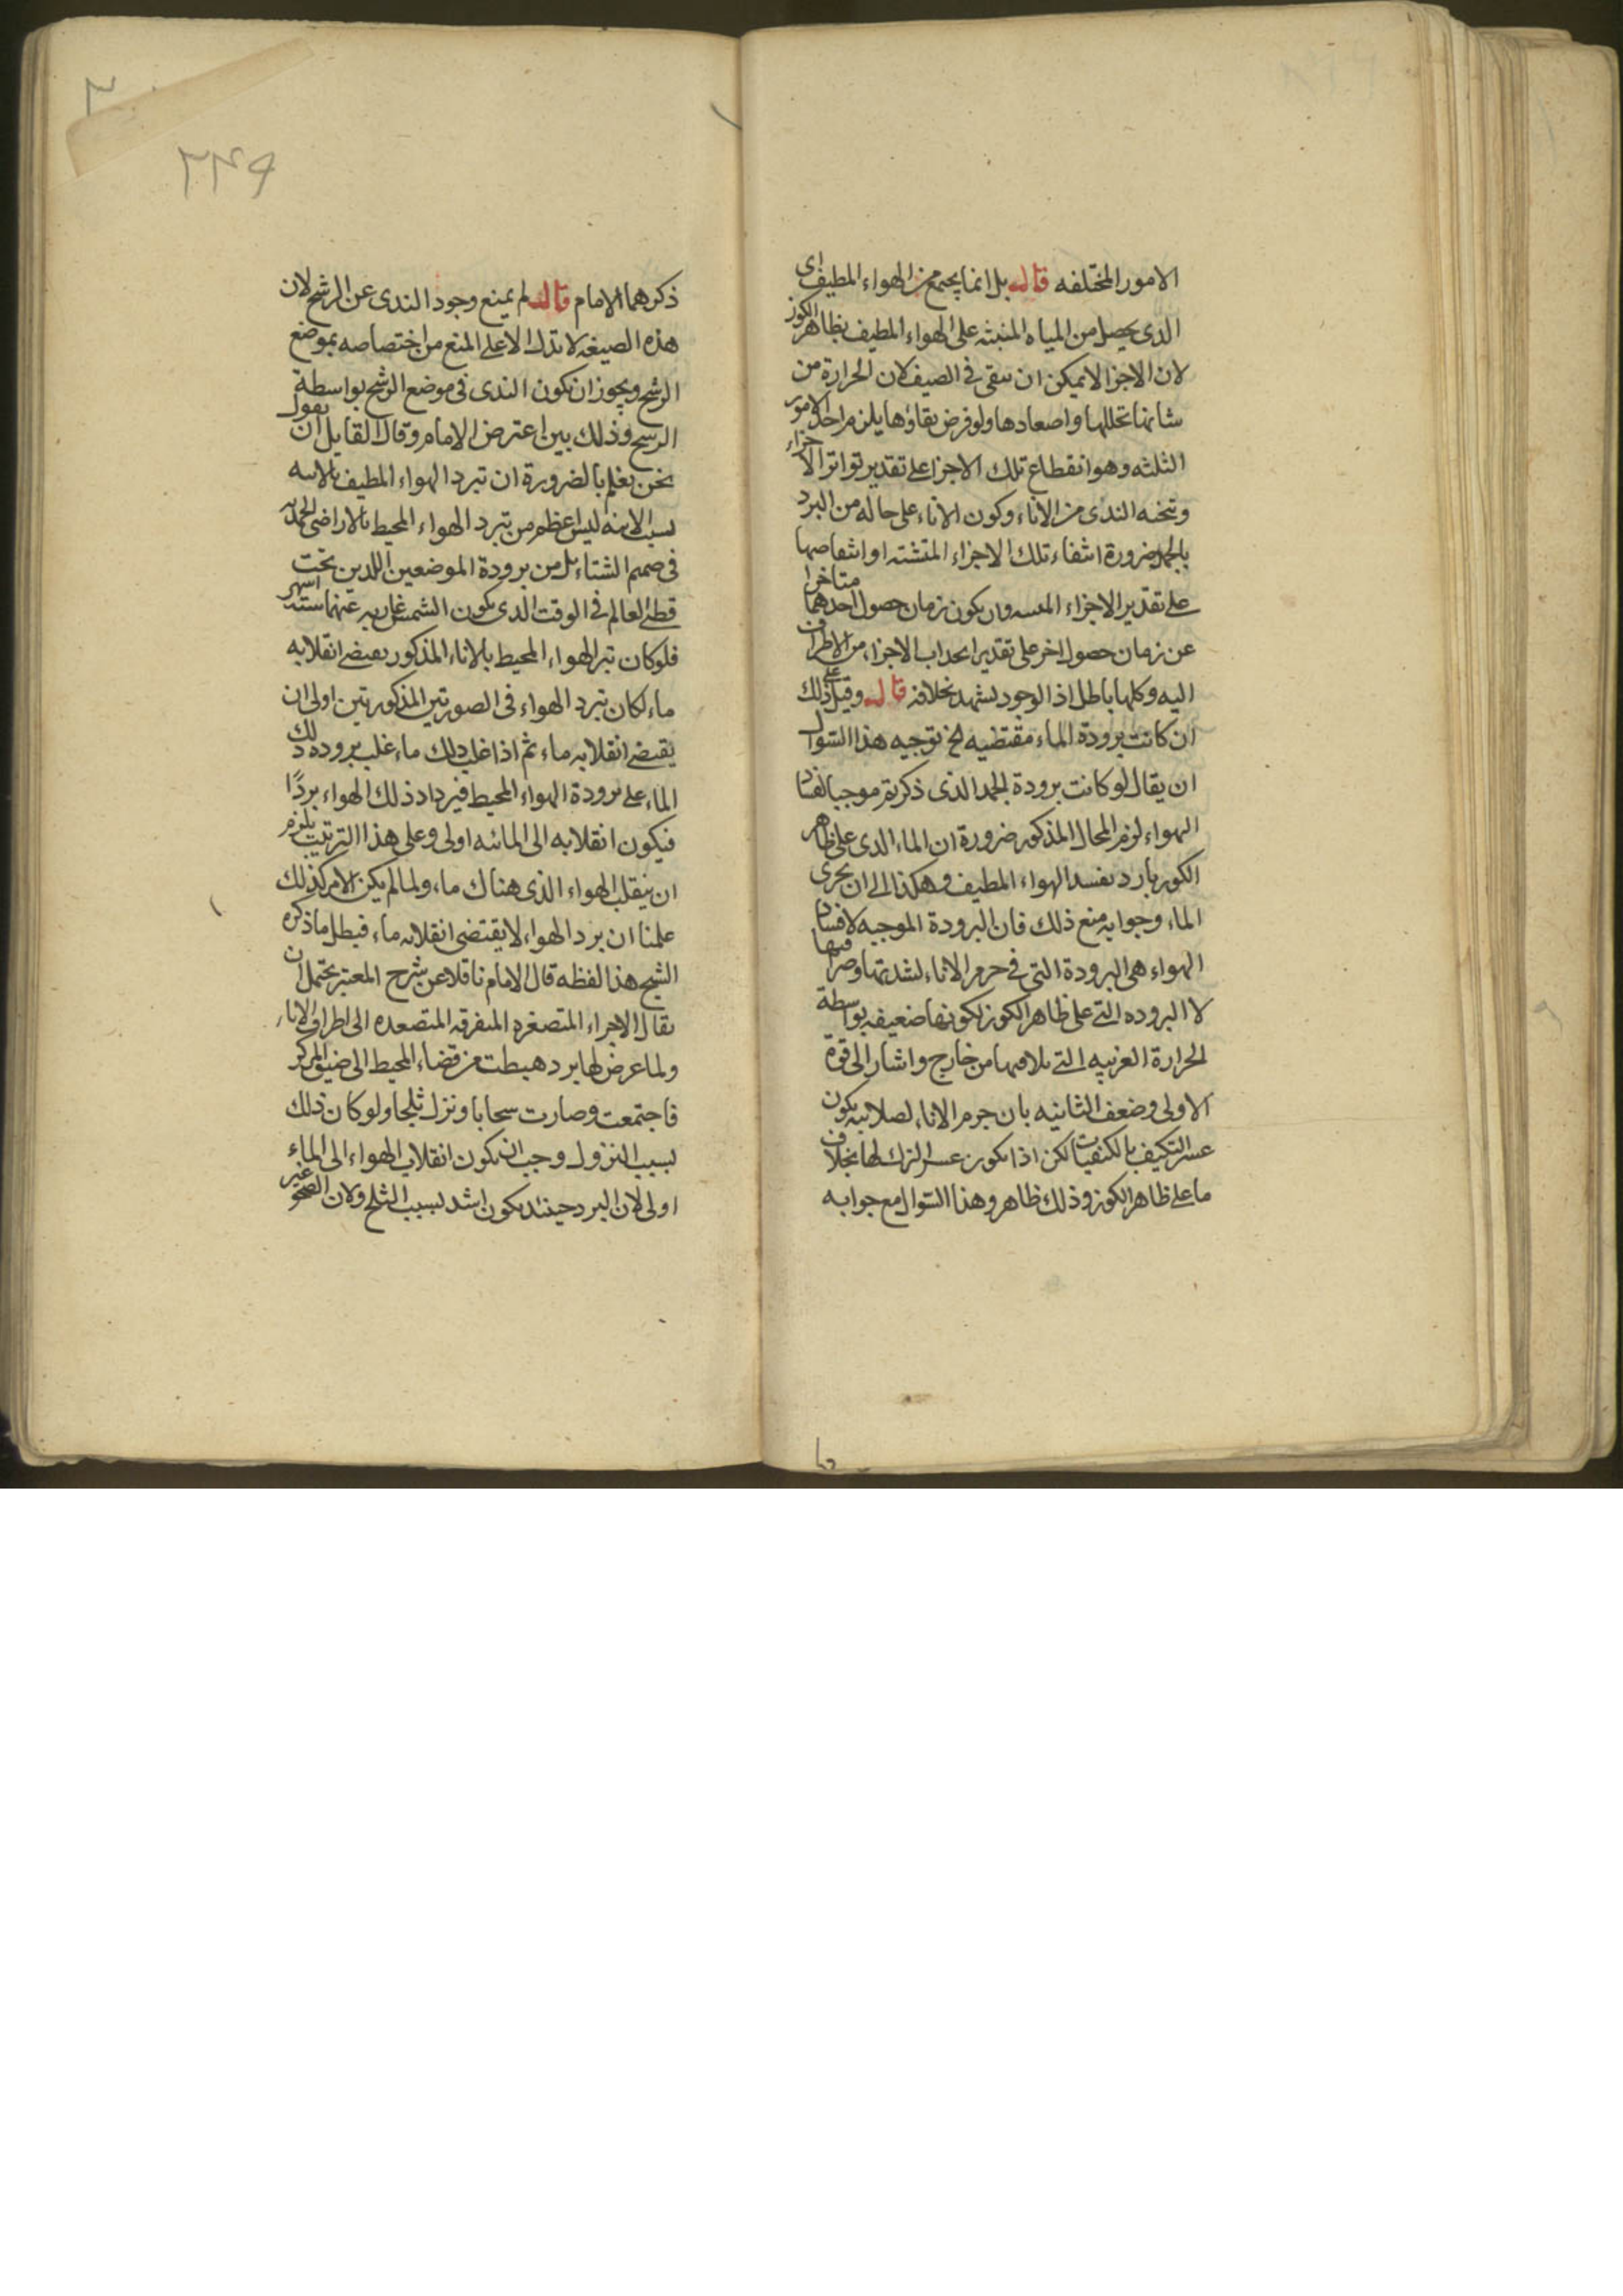 الامور المختلفه قال بل انما يجتمع من الهواء المطيف اى
الذى يحصل من المياه المنبثه على الهواء المطيف بظاهر الكوز
لان الاجزا لا يمكن ان تبقى فى الصيف لان الحرارة من
شانها تحللها واصعادها ولو فرض بقاؤها يلزم احد الامور
الثلثه وهو انقطاع تلك الاجزا على تقدير تواتر الاجزاء
الندى من الاناء وكون الاناء على حاله من البرد
بالجمد ضرورة انتفاء تلك الاجزاء المتشتته او انتقاصها
على تقدير الاجزاء وان يكون زمان حصول احدهما متاخرا
عن زمان حصول اخر على تقدير انجذاب الاجزاء من الاطراف
اليه وكلها باطل اذ الوجود يشهد بخلافه قال وقيل على ذلك
ان كانت برودة الماء مقتضيه الخ توجيه هذا السؤال
ان يقال لو كانت برودة الجمد الذى ذكرتم موجبا لفساد
الهواء لزم المحال المذكور ضرورة ان الماء الذى على ظاهر
الكوز بارد يفسد الهواء المطيف وهكذا الى ان يجرى
الماء وجوابه منع ذلك فان البرودة الموجبه لافساد
الهواء هى البرودة التى فى جرم الاناء لشدتها وصرافيها
لا البروده التى على ظاهر الكوز لكونها ضعيفه بواسطة
الحرارة الغريبه التى تلاقيها من خارج واشار الى قوة
الاولى وضعف الثانيه بان جرم الاناء لصلابته يكون
عسر التكيف بالكيفيات لكن اذا تكون عسر الترك لها بخلاف
ما على ظاهر الكوز وذلك ظاهر وهذا السؤال مع جوابه
٢٤٩
ذكرهما الامام قال لم يمنع وجود الندى عن الرشح لان
هذه الصيغه لا تدل الا على المنع من اختصاصه بموضع
الرشح ويجوز ان يكون الندى فى موضع الرشح بواسطة
الرشح وذلك بين اعترض الامام وقال لقايل ان يقول
نحن نعلم بالضرورة ان تبرد الهواء المطيف بالانيه
بسبب الانيه ليس اعظم من تبرد الهواء المحيط بالاراضى الجمديه
فى صميم الشتاء بل من برودة الموضعين اللذين تحت
قطبى العالم فى الوقت الذى يكون الشمس غاربه عنهما ستة اشهر
فلو كان تبرد الهواء المحيط بالاناء المذكور يقتضى انقلابه
ماء لكان تبرد الهواء فى الصورتين المذكورتين اولى ان
يقتضى انقلابه ماء ثم اذا انقلب ذلك ماء غلب بروده ذلك
الماء على برودة الهواء المحيط فيزداد ذلك الهواء بردًا
فيكون انقلابه الى المائيه اولى وعلى هذا الترتيب يلزم
ان ينقلب الهواء الذى هناك ماء ولما لم يكن الامر كذلك
علمنا ان برد الهواء لا يقتضى انقلابه ماء فبطل ما ذكره
الشيخ هذا لفظه قال الامام ناقلا عن شرح المعتبر يحتمل ان
يقال الاجزاء المتصغره المتفرقه المتصعده الى اطراف الاناء
ولما عرض لها برد هبطت من فضاء المحيط الى ضيق المركز
فاجتمعت وصارت سحابا ونزل ثلجا ولو كان ذلك
بسبب النزول وجب ان يكون انقلاب الهواء الى الماء
اولى لان البرد حينئذ يكون اشد بسبب الثلج ولان الصحو غير